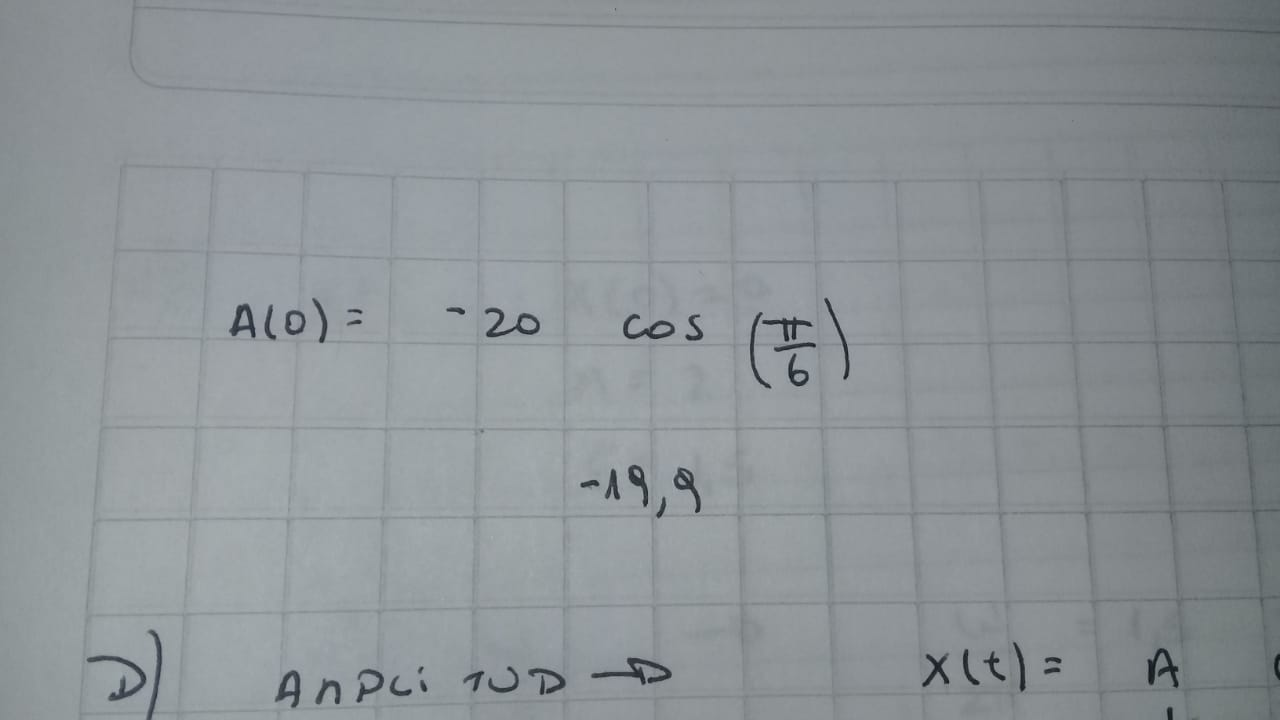 A(0) = -20 cos (π/6)
-19,9
D) AMPLITUD → X(t) = A